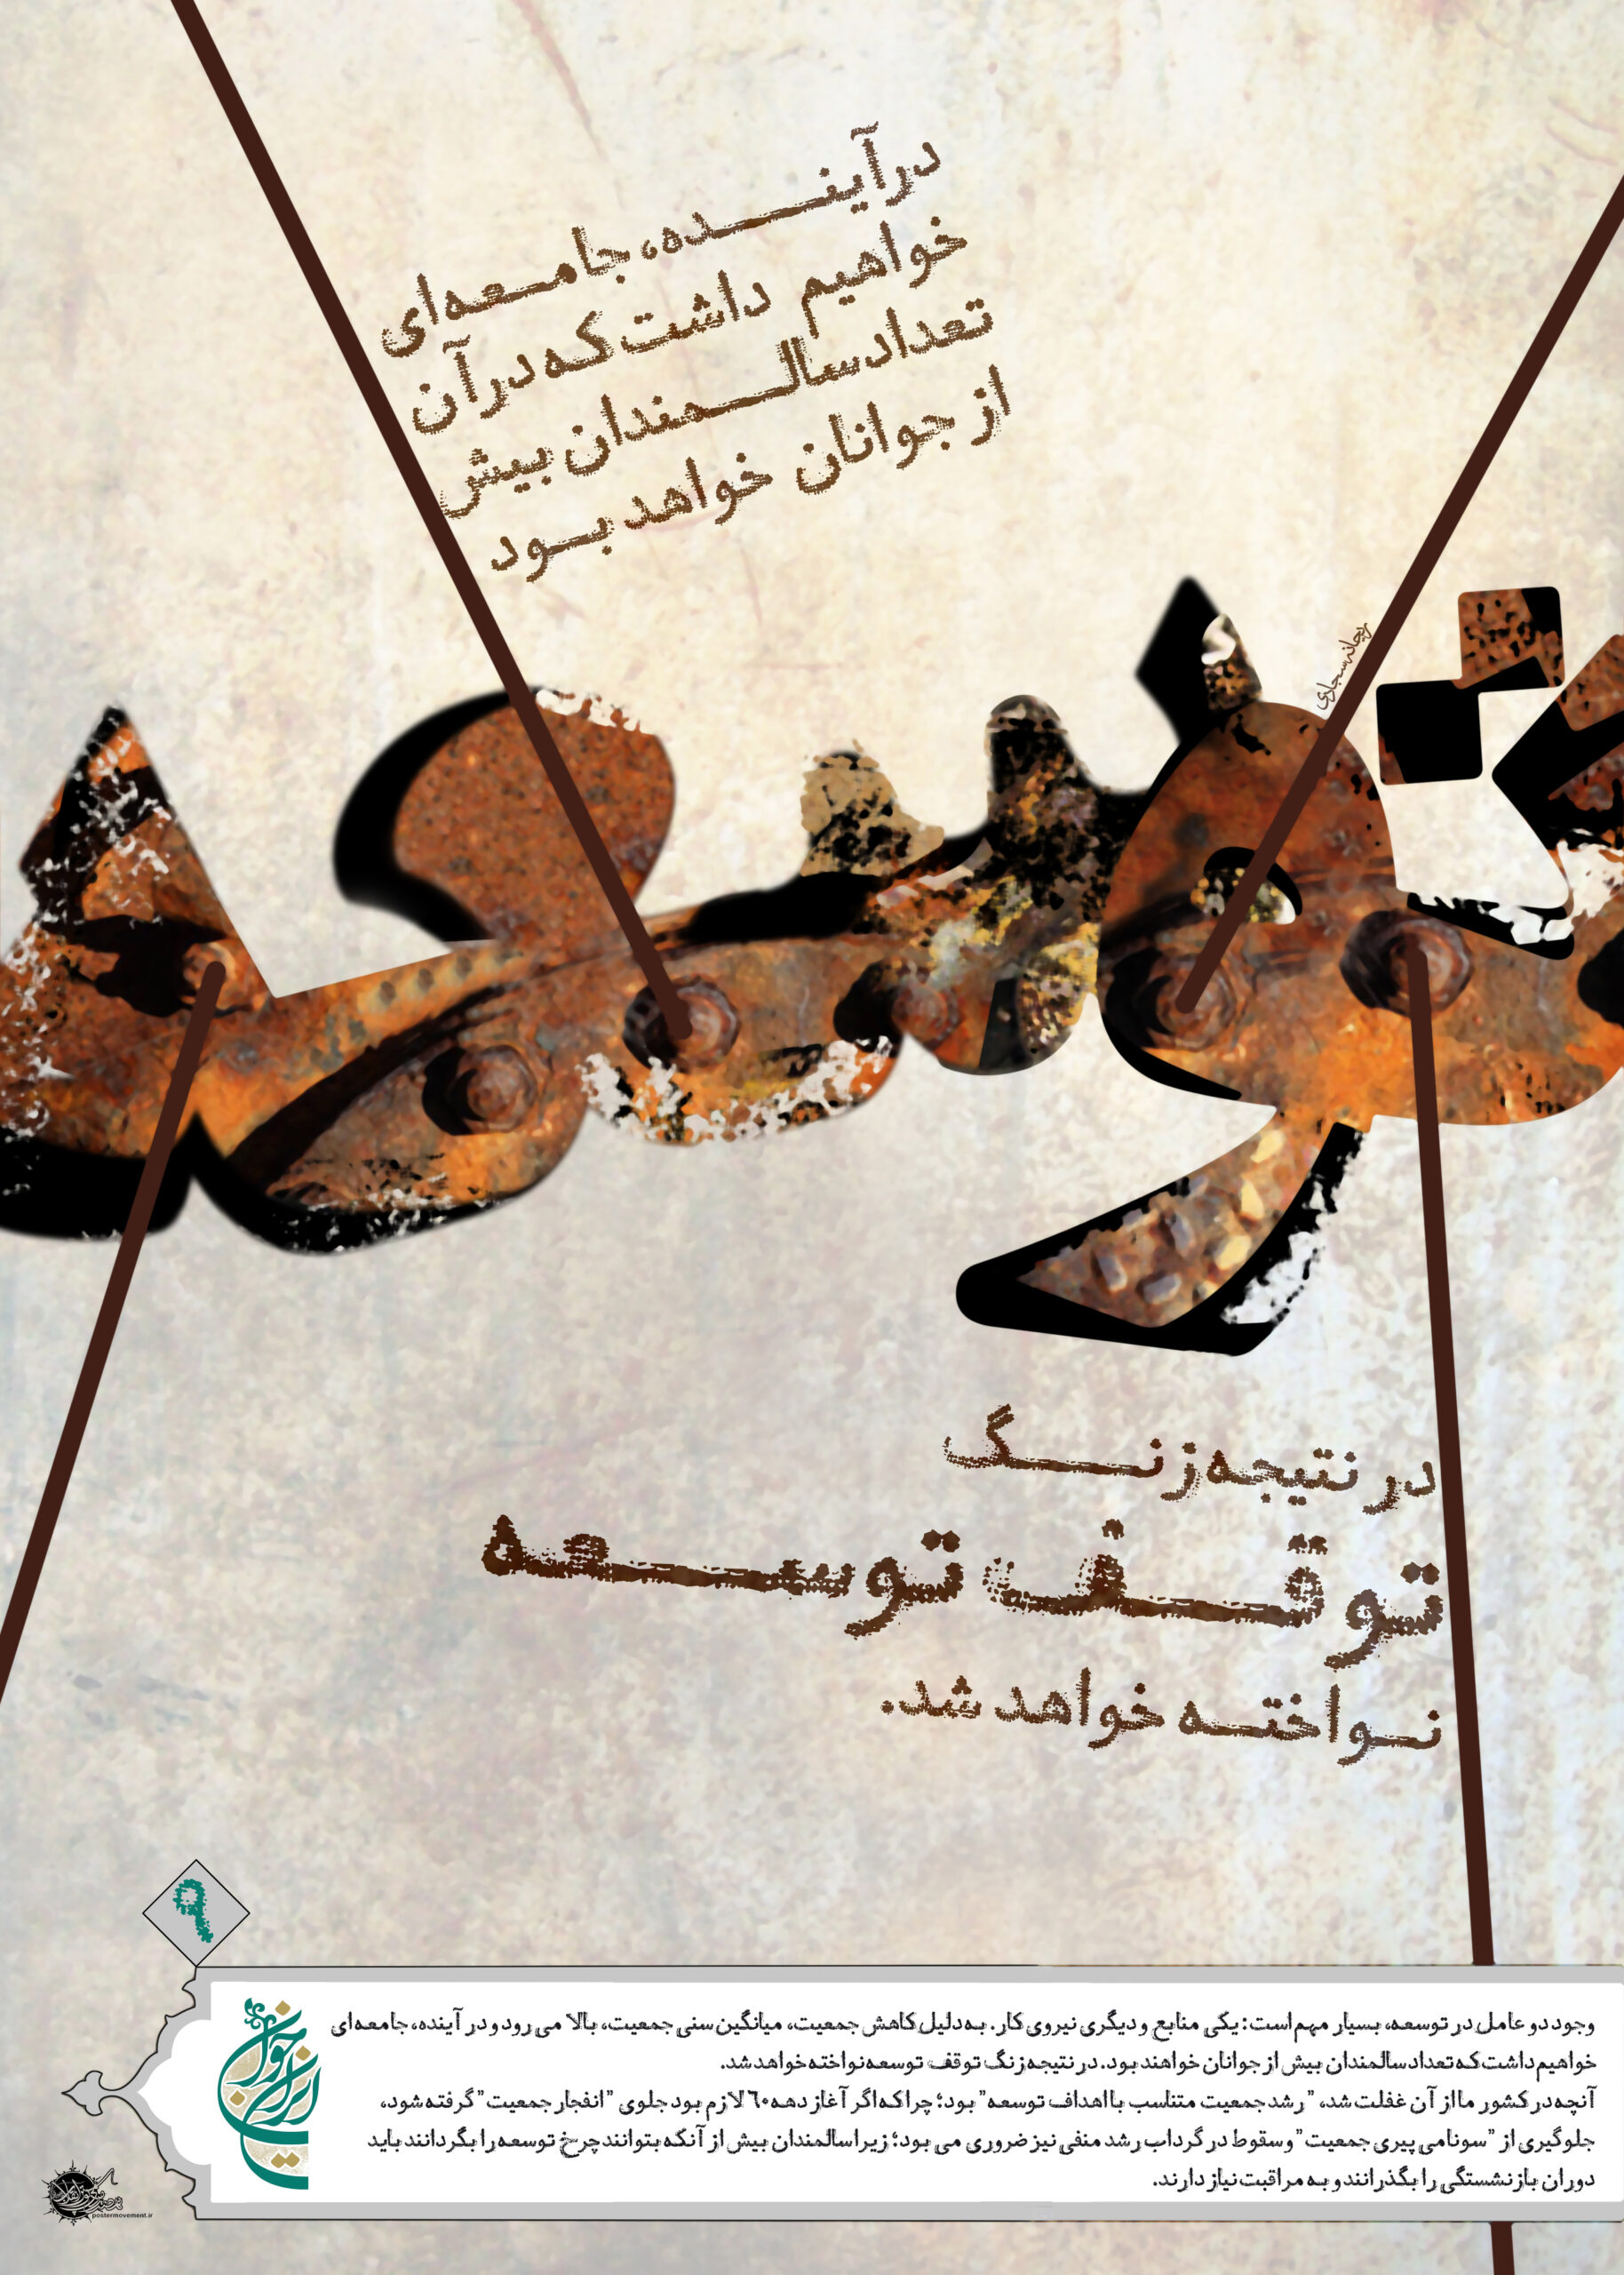 در آینده، جامعه‌ای
خواهیم داشت که در آن
تعداد سالمندان بیش
از جوانان خواهد بود
ریحانه سجادی
توسعه
در نتیجه زنگ
توقف توسعه
نواخته خواهد شد.
۹
وجود دو عامل در توسعه، بسیار مهم است: یکی منابع و دیگری نیروی کار. به دلیل کاهش جمعیت، میانگین سنی جمعیت، بالا می رود و در آینده، جامعه ای
خواهیم داشت که تعداد سالمندان بیش از جوانان خواهند بود. در نتیجه زنگ توقف توسعه نواخته خواهد شد.
آنچه در کشور ما از آن غفلت شد، "رشد جمعیت متناسب با اهداف توسعه" بود؛ چرا که اگر آغاز دهه ۶۰ لازم بود جلوی "انفجار جمعیت" گرفته شود،
جلوگیری از "سونامی پیری جمعیت" و سقوط در گرداب رشد منفی نیز ضروری می بود؛ زیرا سالمندان بیش از آنکه بتوانند چرخ توسعه را بگردانند باید
دوران بازنشستگی را بگذرانند و به مراقبت نیاز دارند.
ایران جوان
postermovement.ir